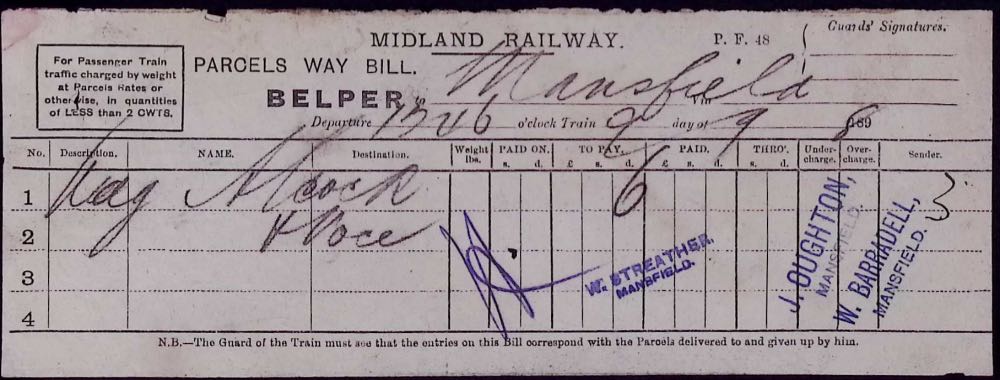 MIDLAND RAILWAY. P. F. 48 Guards' Signatures.
For Passenger Train
traffic charged by weight
at Parcels Rates or
otherwise, in quantities
of LESS than 2 CWTS.
PARCELS WAY BILL.
BELPER to Mansfield
Via
Departure o'clock Train 9 day of 9 1898
No. Description. NAME. Destination. Weight lbs. PAID ON. s. d. TO PAY. £ s. d. PAID. £ s. d. THRO'. s. d. Under-charge. Over-charge. Sender.
1 Alcock 6 3
2 & Voce
3
4
W. STREATHER,
MANSFIELD.
J. OUGHTON,
MANSFIELD.
W. BARRADELL,
MANSFIELD.
N.B.—The Guard of the Train must see that the entries on this Bill correspond with the Parcels delivered to and given up by him.